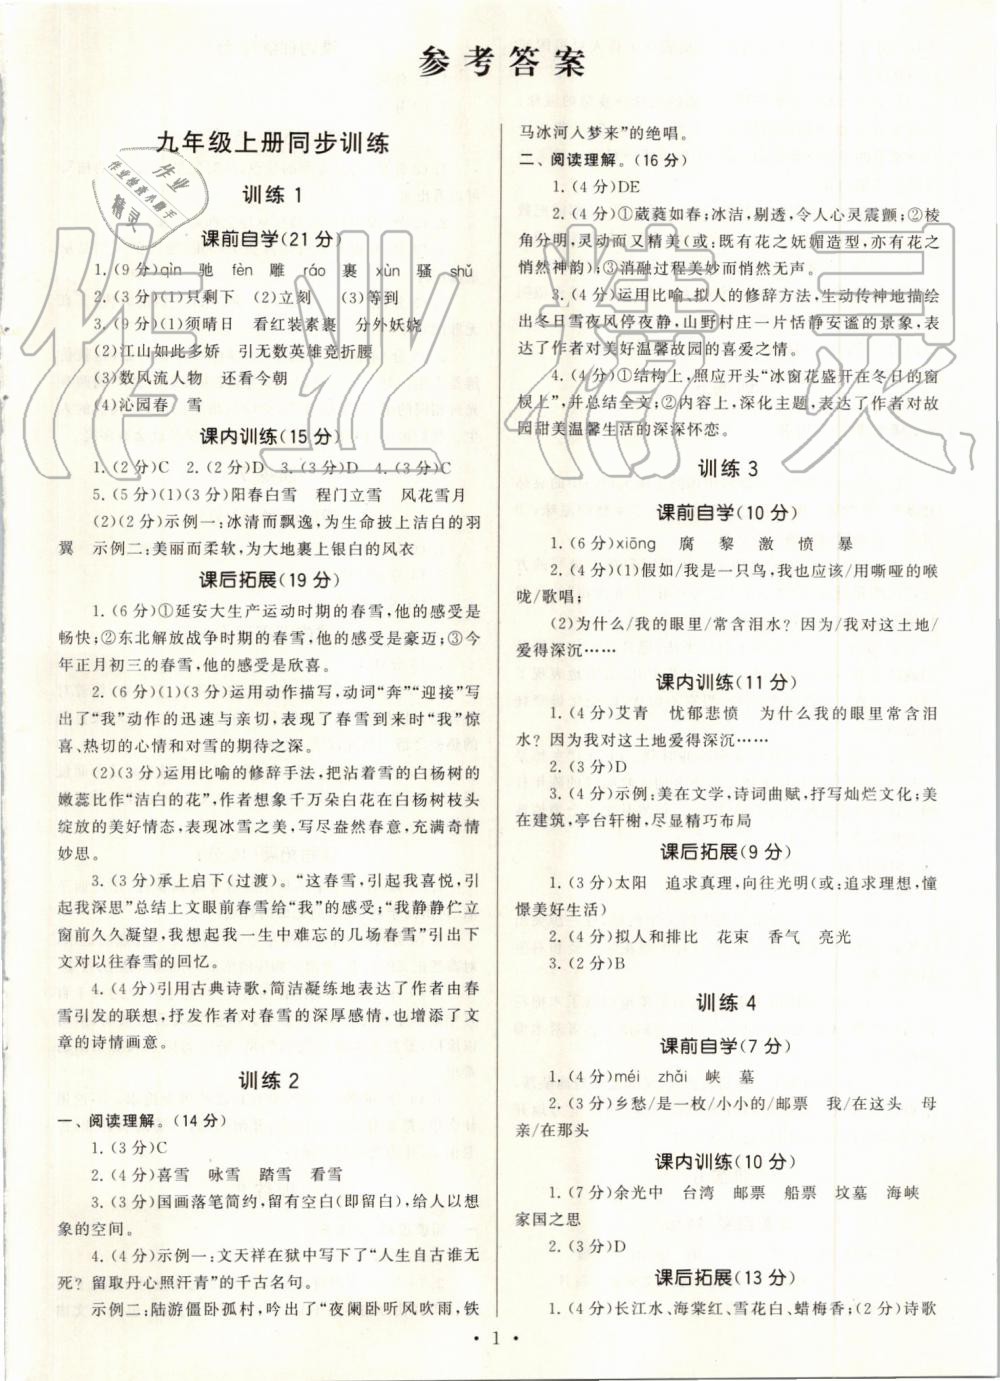 参考答案
九年级上册同步训练
训练1
课前自学(21分)
1.(9分)qìn 驰 fèn 雕 ráo 裹 xùn 骚 shǔ
2.(3分)(1)只剩下 (2)立刻 (3)等到
3.(9分)(1)须晴日 看红装素裹 分外妖娆
(2)江山如此多娇 引无数英雄竞折腰
(3)数风流人物 还看今朝
(4)沁园春 雪
课内训练(15分)
1.(2分)C 2.(2分)D 3.(3分)D 4.(3分)C
5.(5分)(1)(3分)阳春白雪 程门立雪 风花雪月
(2)(2分)示例一:冰清而飘逸,为生命披上洁白的羽
翼 示例二:美丽而柔软,为大地裹上银白的风衣
课后拓展(19分)
1.(6分)①延安大生产运动时期的春雪,他的感受是
畅快;②东北解放战争时期的春雪,他的感受是豪迈;③今
年正月初三的春雪,他的感受是欣喜。
2.(6分)(1)(3分)运用动作描写,动词“奔”“迎接”写
出了“我”动作的迅速与亲切,表现了春雪到来时“我”惊
喜、热切的心情和对雪的期待之深。
(2)(3分)运用比喻的修辞手法,把沾着雪的白杨树的
嫩蕊比作“洁白的花”,作者想象千万朵白花在白杨树枝头
绽放的美好情态,表现冰雪之美,写尽盎然春意,充满奇情
妙思。
3.(3分)承上启下(过渡)。“这春雪,引起我喜悦,引
起我深思”总结上文眼前春雪给“我”的感受;“我静静伫立
窗前久久凝望,我想起我一生中难忘的几场春雪”引出下
文对以往春雪的回忆。
4.(4分)引用古典诗歌,简洁凝练地表达了作者由春
雪引发的联想,抒发作者对春雪的深厚感情,也增添了文
章的诗情画意。
训练2
一、阅读理解。(14分)
1.(3分)C
2.(4分)喜雪 咏雪 踏雪 看雪
3.(3分)国画落笔简约,留有空白(即留白),给人以想
象的空间。
4.(4分)示例一:文天祥在狱中写下了“人生自古谁无
死?留取丹心照汗青”的千古名句。
示例二:陆游僵卧孤村,吟出了“夜阑卧听风吹雨,铁
马冰河入梦来”的绝唱。
二、阅读理解。(16分)
1.(4分)DE
2.(4分)①葳蕤如春;冰洁,剔透,令人心灵震颤;②棱
角分明,灵动而又精美(或:既有花之妩媚造型,亦有花之
悄然神韵);③消融过程美妙而悄然无声。
3.(4分)运用比喻、拟人的修辞方法,生动传神地描绘
出冬日雪夜风停夜静,山野村庄一片恬静安谧的景象,表
达了作者对美好温馨故园的喜爱之情。
4.(4分)①结构上,照应开头“冰窗花盛开在冬日的窗
棂上”,并总结全文;②内容上,深化主题,表达了作者对故
园甜美温馨生活的深深怀恋。
训练3
课前自学(10分)
1.(6分)xiōng 腐 黎 激 愤 暴
2.(4分)(1)假如/我是一只鸟,我也应该/用嘶哑的喉
咙/歌唱;
(2)为什么/我的眼里/常含泪水?因为/我对这土地/
爱得深沉……
课内训练(11分)
1.(4分)艾青 忧郁悲愤 为什么我的眼里常含泪
水?因为我对这土地爱得深沉……
2.(3分)D
3.(4分)示例:美在文学,诗词曲赋,抒写灿烂文化;美
在建筑,亭台轩榭,尽显精巧布局
课后拓展(9分)
1.(3分)太阳 追求真理,向往光明(或:追求理想,憧
憬美好生活)
2.(4分)拟人和排比 花束 香气 亮光
3.(2分)B
训练4
课前自学(7分)
1.(4分)méi zhǎi 峡 墓
2.(3分)乡愁/是一枚/小小的/邮票 我/在这头 母
亲/在那头
课内训练(10分)
1.(7分)余光中 台湾 邮票 船票 坟墓 海峡
家国之思
2.(3分)D
课后拓展(13分)
1.(4分)长江水、海棠红、雪花白、蜡梅香;(2分)诗歌
• 1 •
作业
作业检查小助手
精灵
作业精灵